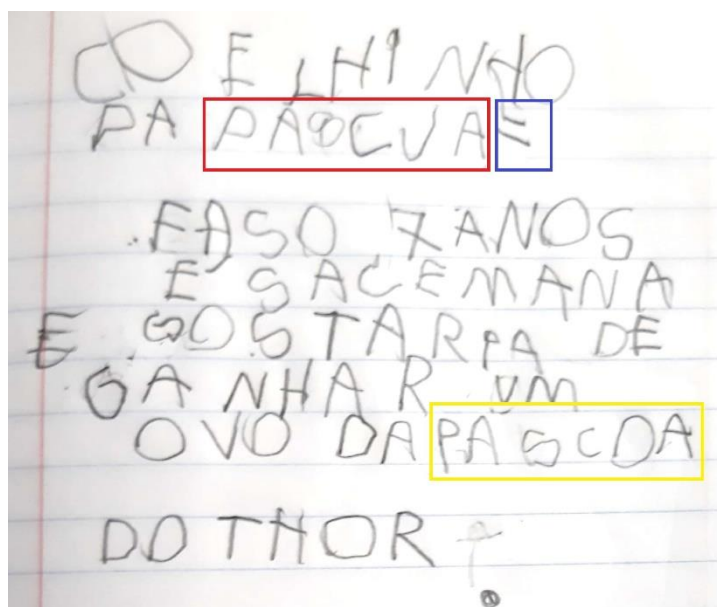 COELHINHO
DA PÁSCUA E
FASO 7 ANOS
ESACEMANA
E GOSTARIA DE
GANHAR UM
OVO DA PASCOA
DO THOR